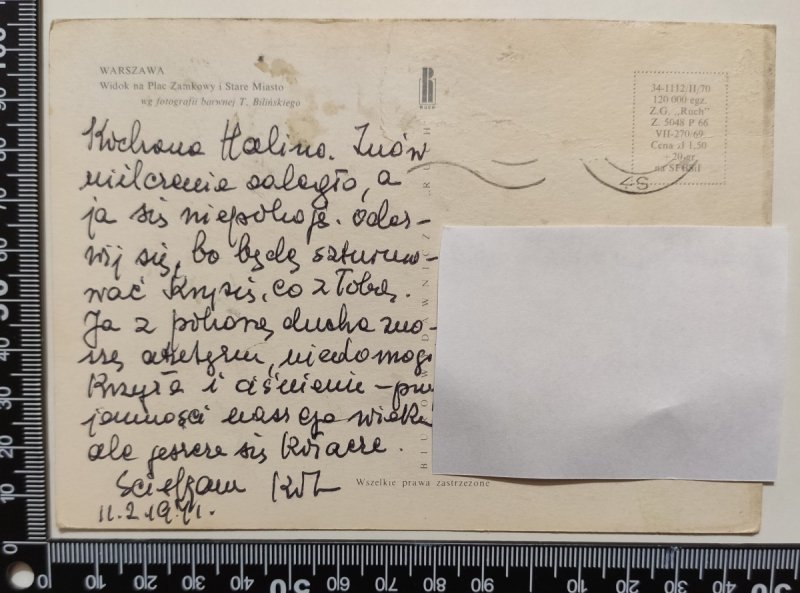 WARSZAWA
Widok na Plac Zamkowy i Stare Miasto
wg fotografii barwnej T. Bilińskiego
RUCH
34-1112/II/70
120 000 egz.
Z.G. „Ruch"
Z. 5048 P 66
VII-270/69
Cena zł 1,50
+ 20 gr.
na SFBSiI
Kochana Halino. Znów
milczenie zaległo, a
ja się niepokoję. Odez-
wij się, bo będę szturmo-
wać Krysię, co z Tobą.
Ja z pokorą ducha zno-
szę artretyzm, niedomogi
krzyża i ciśnienie –
jemności naszego wieku
ale jeszcze się kołaczę.
Ściskam
11.2.1971.
BIURO WYDAWNICZE „RUCH
Wszelkie prawa zastrzeżone
100
90
80
70
60
50
40
30
20
10
0
0
10
20
30
40
50
60
70
80
90
10
20
30
40
50